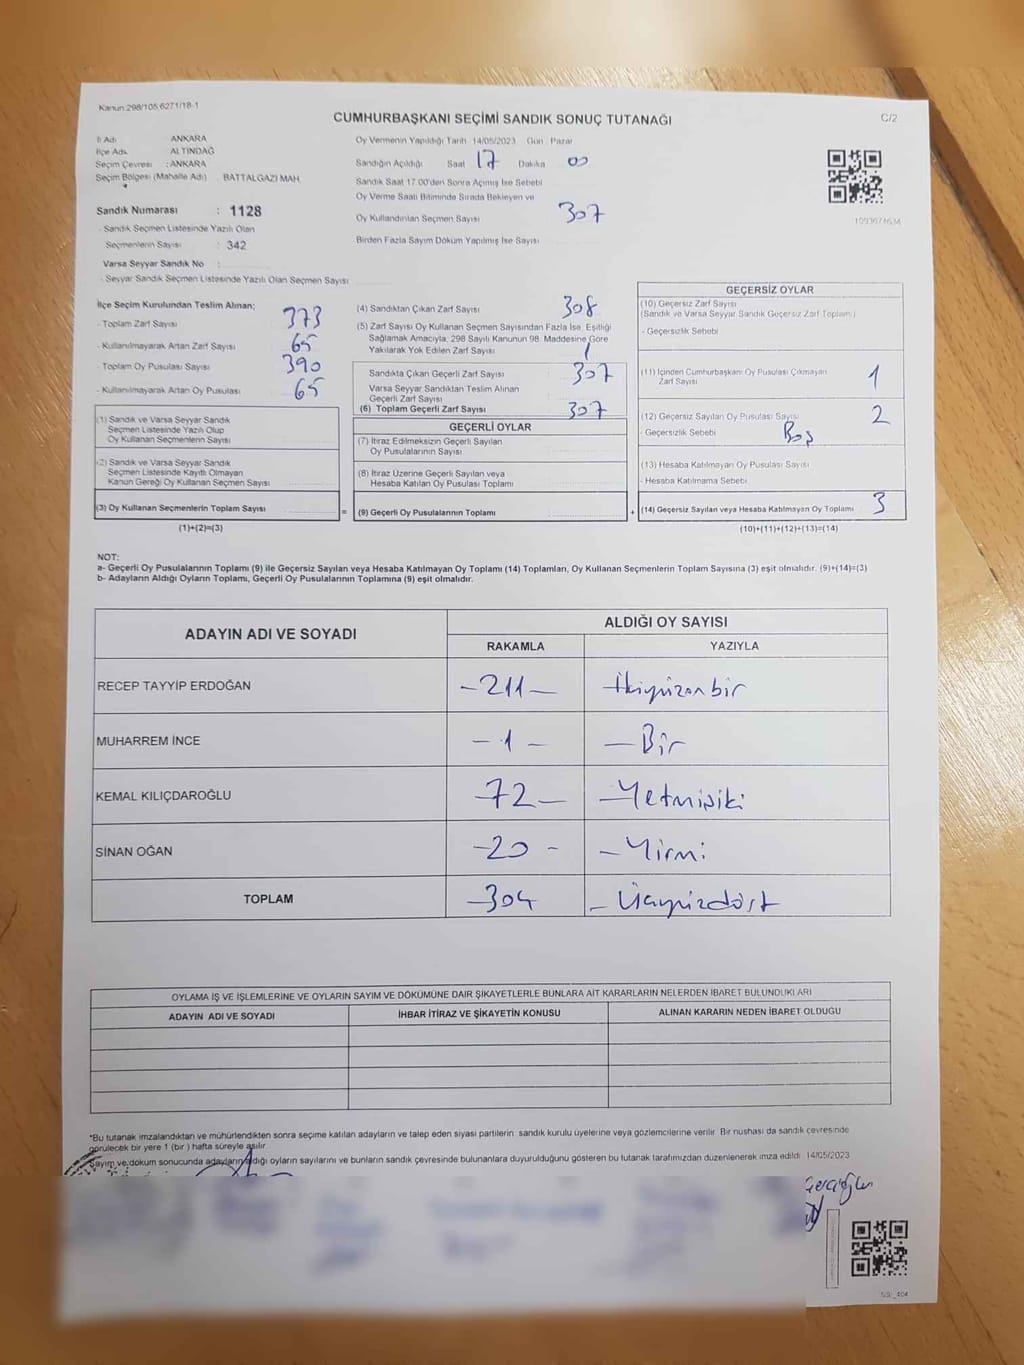 Kanun 298/105,6271/18-1
CUMHURBAŞKANI SEÇİMİ SANDIK SONUÇ TUTANAĞI
C/2
İl Adı ANKARA
İlçe Adı ALTINDAĞ
Seçim Çevresi : ANKARA
Seçim Bölgesi (Mahalle Adı) BATTALGAZI MAH
Sandık Numarası : 1128
- Sandık Seçmen Listesinde Yazılı Olan
Seçmenlerin Sayısı : 342
Varsa Seyyar Sandık No :
- Seyyar Sandık Seçmen Listesinde Yazılı Olan Seçmen Sayısı
Oy Vermenin Yapıldığı Tarih 14/05/2023 Gün Pazar
Sandığın Açıldığı Saat 17 Dakika 00
Sandık Saat 17:00'den Sonra Açmış İse Sebebi
Oy Verme Saati Bitiminde Sırada Bekleyen ve
Oy Kullandırılan Seçmen Sayısı 307
Birden Fazla Sayım Döküm Yapılmış İse Sayısı
İlçe Seçim Kurulundan Teslim Alınan;
- Toplam Zarf Sayısı 373
- Kullanılmayarak Artan Zarf Sayısı 65
- Toplam Oy Pusulası Sayısı 390
- Kullanılmayarak Artan Oy Pusulası 65
(1) Sandık ve Varsa Seyyar Sandık
Seçmen Listesinde Yazılı Olup
Oy Kullanan Seçmenlerin Sayısı
(2) Sandık ve Varsa Seyyar Sandık
Seçmen Listesinde Kayıtlı Olmayan
Kanun Gereği Oy Kullanan Seçmen Sayısı
(3) Oy Kullanan Seçmenlerin Toplam Sayısı
(1)+(2)=(3)
=
(4) Sandıktan Çıkan Zarf Sayısı 308
(5) Zarf Sayısı Oy Kullanan Seçmen Sayısından Fazla İse, Eşitliği
Sağlamak Amacıyla; 298 Sayılı Kanunun 98. Maddesine Göre
Yakılarak Yok Edilen Zarf Sayısı 1
Sandıkta Çıkan Geçerli Zarf Sayısı 307
Varsa Seyyar Sandıktan Teslim Alınan
Geçerli Zarf Sayısı
(6) Toplam Geçerli Zarf Sayısı 307
GEÇERLİ OYLAR
(7) İtiraz Edilmeksizin Geçerli Sayılan
Oy Pusulalarının Sayısı
(8) İtiraz Üzerine Geçerli Sayılan veya
Hesaba Katılan Oy Pusulası Toplamı
(9) Geçerli Oy Pusulalarının Toplamı
+
GEÇERSİZ OYLAR
(10) Geçersiz Zarf Sayısı
(Sandık ve Varsa Seyyar Sandık Geçersiz Zarf Toplamı)
- Geçersizlik Sebebi
(11) İçinden Cumhurbaşkanı Oy Pusulası Çıkmayan
Zarf Sayısı 1
(12) Geçersiz Sayılan Oy Pusulası Sayısı 2
- Geçersizlik Sebebi Boş
(13) Hesaba Katılmayan Oy Pusulası Sayısı
- Hesaba Katılmama Sebebi
(14) Geçersiz Sayılan veya Hesaba Katılmayan Oy Toplamı 3
(10)+(11)+(12)+(13)=(14)
NOT:
a- Geçerli Oy Pusulalarının Toplamı (9) ile Geçersiz Sayılan veya Hesaba Katılmayan Oy Toplamı (14) Toplamları, Oy Kullanan Seçmenlerin Toplam Sayısına (3) eşit olmalıdır. (9)+(14)=(3)
b- Adayların Aldığı Oyların Toplamı, Geçerli Oy Pusulalarının Toplamına (9) eşit olmalıdır.
ADAYIN ADI VE SOYADI ALDIĞI OY SAYISI
RAKAMLA YAZIYLA
RECEP TAYYİP ERDOĞAN -211- İkiyüzonbir
MUHARREM İNCE -1- -Bir
KEMAL KILIÇDAROĞLU -72- -Yetmişiki
SİNAN OĞAN -20- -Yirmi
TOPLAM -304 -Üçyüzdört
OYLAMA İŞ VE İŞLEMLERİNE VE OYLARIN SAYIM VE DÖKÜMÜNE DAİR ŞİKAYETLERLE BUNLARA AİT KARARLARIN NELERDEN İBARET BULUNDUKLARI
ADAYIN ADI VE SOYADI İHBAR İTİRAZ VE ŞİKAYETİN KONUSU ALINAN KARARIN NEDEN İBARET OLDUĞU
*Bu tutanak imzalandıktan ve mühürlendikten sonra seçime katılan adayların ve talep eden siyasi partilerin sandık kurulu üyelerine veya gözlemcilerine verilir. Bir nushası da sandık çevresinde
görülecek bir yere 1 (bir) hafta süreyle asılır.
Sayım ve döküm sonucunda adayların aldığı oyların sayılarını ve bunların sandık çevresinde bulunanlara duyurulduğunu gösteren bu tutanak tarafımızdan düzenlenerek imza edildi. 14/05/2023